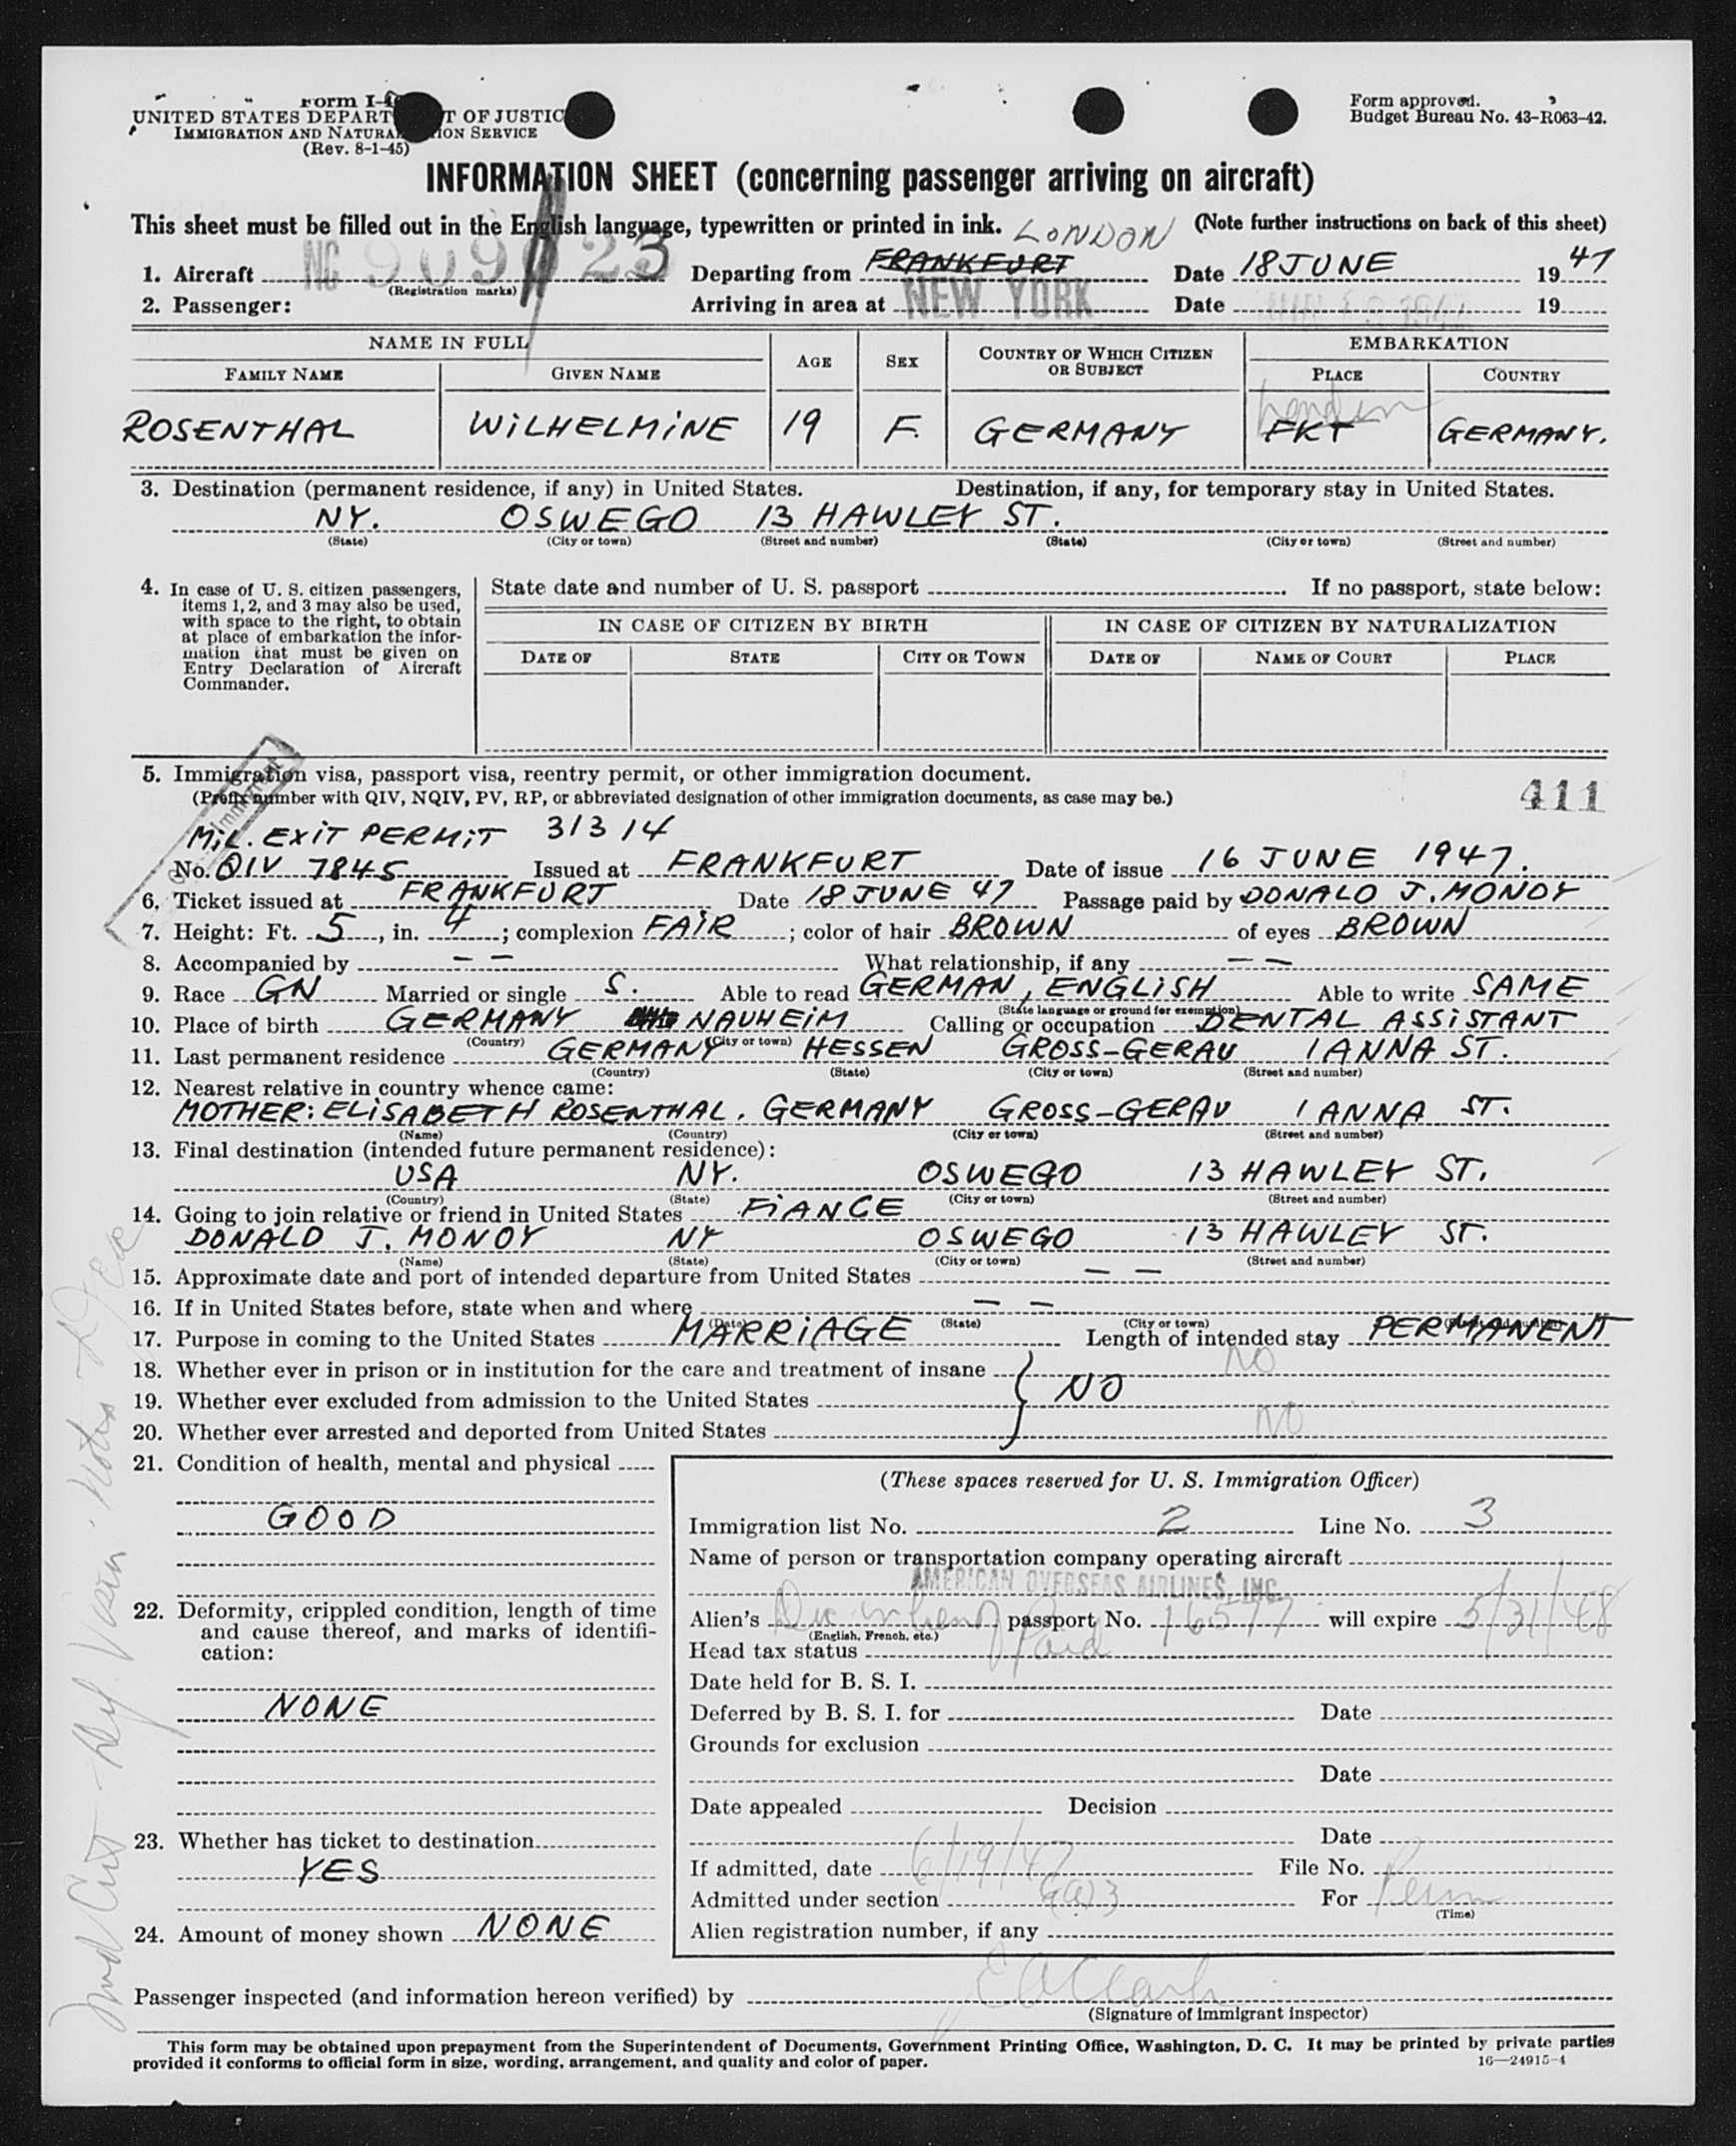 Form I-
UNITED STATES DEPARTMENT OF JUSTICE
IMMIGRATION AND NATURALIZATION SERVICE
(Rev. 8-1-45)
Form approved.
Budget Bureau No. 43-R063-42.
INFORMATION SHEET (concerning passenger arriving on aircraft)
This sheet must be filled out in the English language, typewritten or printed in ink. (Note further instructions on back of this sheet)
LONDON
1. Aircraft NC 909 23 Departing from FRANKFURT Date 18 JUNE 1947
(Registration marks)
2. Passenger: Arriving in area at NEW YORK Date 19
NAME IN FULL AGE SEX COUNTRY OF WHICH CITIZEN OR SUBJECT EMBARKATION
FAMILY NAME GIVEN NAME PLACE COUNTRY
London
ROSENTHAL WILHELMINE 19 F. GERMANY FKT GERMANY.
3. Destination (permanent residence, if any) in United States. Destination, if any, for temporary stay in United States.
NY. OSWEGO 13 HAWLEY ST.
(State) (City or town) (Street and number) (State) (City or town) (Street and number)
4. In case of U. S. citizen passengers,
items 1, 2, and 3 may also be used,
with space to the right, to obtain
at place of embarkation the infor-
mation that must be given on
Entry Declaration of Aircraft
Commander.
State date and number of U. S. passport If no passport, state below:
IN CASE OF CITIZEN BY BIRTH IN CASE OF CITIZEN BY NATURALIZATION
DATE OF STATE CITY OR TOWN DATE OF NAME OF COURT PLACE
5. Immigration visa, passport visa, reentry permit, or other immigration document.
(Prefix number with QIV, NQIV, PV, RP, or abbreviated designation of other immigration documents, as case may be.)
411
Immigrant
MIL. EXIT PERMIT 31314
No. QIV 7845 Issued at FRANKFURT Date of issue 16 JUNE 1947.
6. Ticket issued at FRANKFURT Date 18 JUNE 47 Passage paid by DONALD J. MONDY
7. Height: Ft. 5, in. 4; complexion FAIR; color of hair BROWN of eyes BROWN
8. Accompanied by - - What relationship, if any - -
9. Race GN Married or single S. Able to read GERMAN, ENGLISH Able to write SAME
(State language or ground for exemption)
10. Place of birth GERMANY NAUHEIM Calling or occupation DENTAL ASSISTANT
(Country) (City or town)
11. Last permanent residence GERMANY HESSEN GROSS-GERAU 1 ANNA ST.
(Country) (State) (City or town) (Street and number)
12. Nearest relative in country whence came:
MOTHER: ELISABETH ROSENTHAL. GERMANY GROSS-GERAU 1 ANNA ST.
(Name) (Country) (City or town) (Street and number)
13. Final destination (intended future permanent residence):
USA NY. OSWEGO 13 HAWLEY ST.
(Country) (State) (City or town) (Street and number)
14. Going to join relative or friend in United States FIANCE
DONALD J. MONDY NY OSWEGO 13 HAWLEY ST.
(Name) (State) (City or town) (Street and number)
15. Approximate date and port of intended departure from United States - -
16. If in United States before, state when and where - -
(Date) (State) (City or town) (Street and number)
17. Purpose in coming to the United States MARRIAGE Length of intended stay PERMANENT
18. Whether ever in prison or in institution for the care and treatment of insane NO
19. Whether ever excluded from admission to the United States NO
20. Whether ever arrested and deported from United States NO
21. Condition of health, mental and physical
GOOD
22. Deformity, crippled condition, length of time
and cause thereof, and marks of identifi-
cation:
NONE
23. Whether has ticket to destination
YES
24. Amount of money shown NONE
(These spaces reserved for U. S. Immigration Officer)
Immigration list No. 2 Line No. 3
Name of person or transportation company operating aircraft
AMERICAN OVERSEAS AIRLINES, INC.
Alien's passport No. 16577 will expire 5/31/48
(English, French, etc.)
Head tax status Paid
Date held for B. S. I.
Deferred by B. S. I. for Date
Grounds for exclusion
Date
Date appealed Decision
Date
If admitted, date 6/19/47 File No.
Admitted under section 4(a)3 For Perm
(Time)
Alien registration number, if any
Passenger inspected (and information hereon verified) by
(Signature of immigrant inspector)
This form may be obtained upon prepayment from the Superintendent of Documents, Government Printing Office, Washington, D. C. It may be printed by private parties
provided it conforms to official form in size, wording, arrangement, and quality and color of paper.
16—24915-4